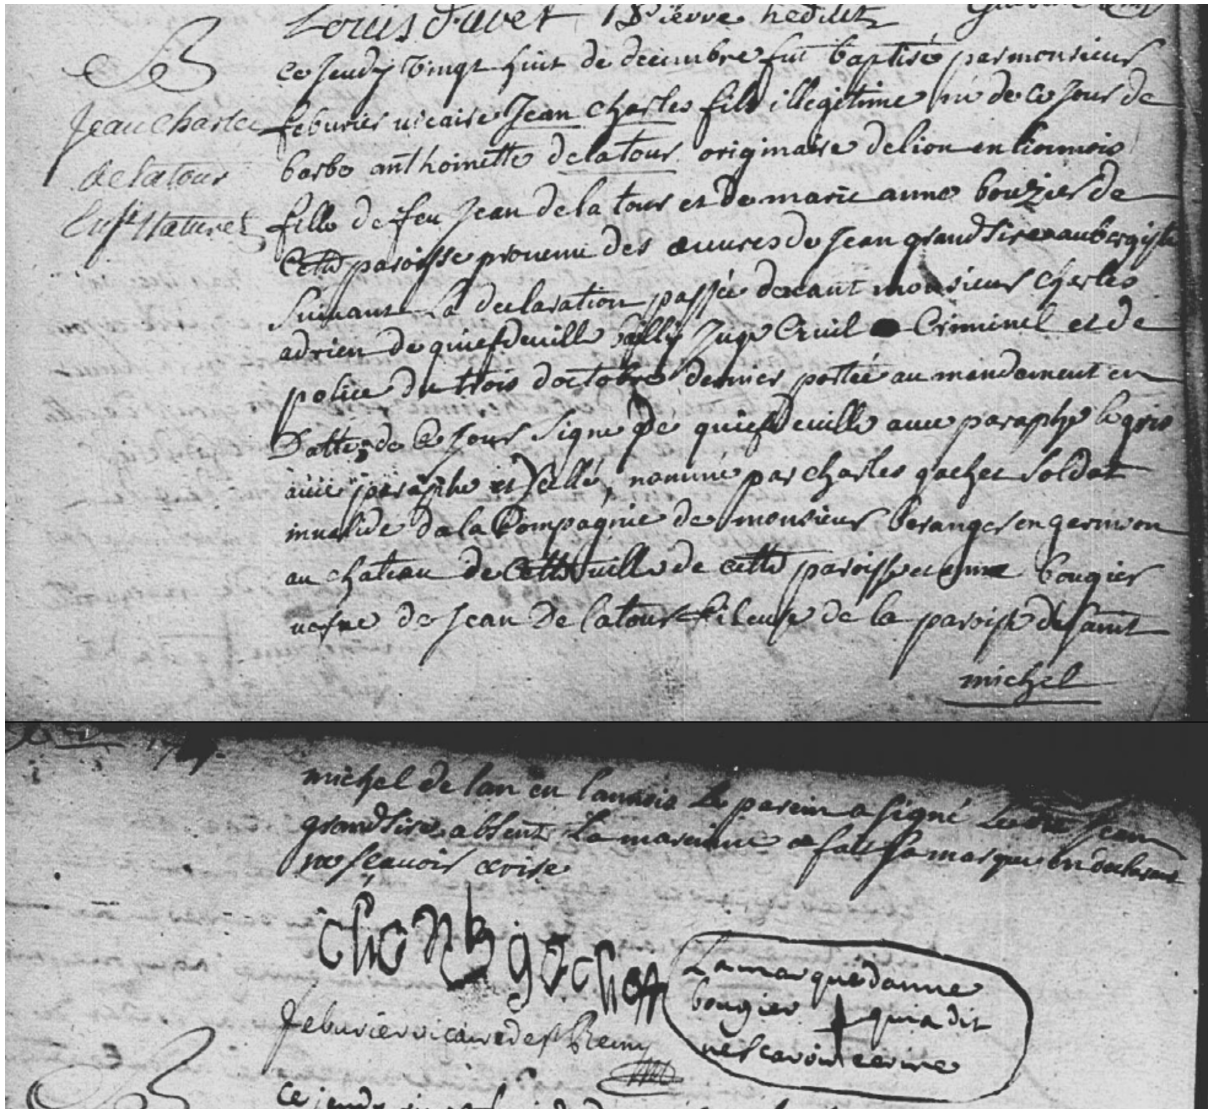 Louis duvet Pierre hedillz
B
Jean Charles
de la tour
Enft Naturel
ce Jeudy vingt huit de decembre fut baptisé par monsieur
feburier vicaire Jean Charles fils illegitime né de ce Jour de
barbe anthoinette de la tour originaire de lion en lionnois
fille de feu Jean de la tour et de marie anne bougier de
cette paroisse provenu des œuvres de Jean grandsire aubergiste
suivant la declaration passée devant monsieur Charles
adrien de quiefdeville bailly Juge Civil Criminel et de
police du trois doctobre dernier portée au mandement en
datte de ce Jour signé De quiefdeville avec paraphe le gris
avec paraphe et scellé, nommé par Charles gachet soldat
invalide da la Compagnie de monsieur beranger en garnison
au chateau de Cette ville de cette paroisse et anne bougier
vefve de Jean De la tour fileuse de la paroisse de saint
michel
michel de lan en lannois Le parein a signé Ledit Jean
grandsire absent La mareinne a fait sa marque en declarant
ne sçavoir ecrire
charle gachett
feburier vicaire de st Remy
La marque danne
bougier qui a dit
ne scavoir ecrire
B
ce jeudy